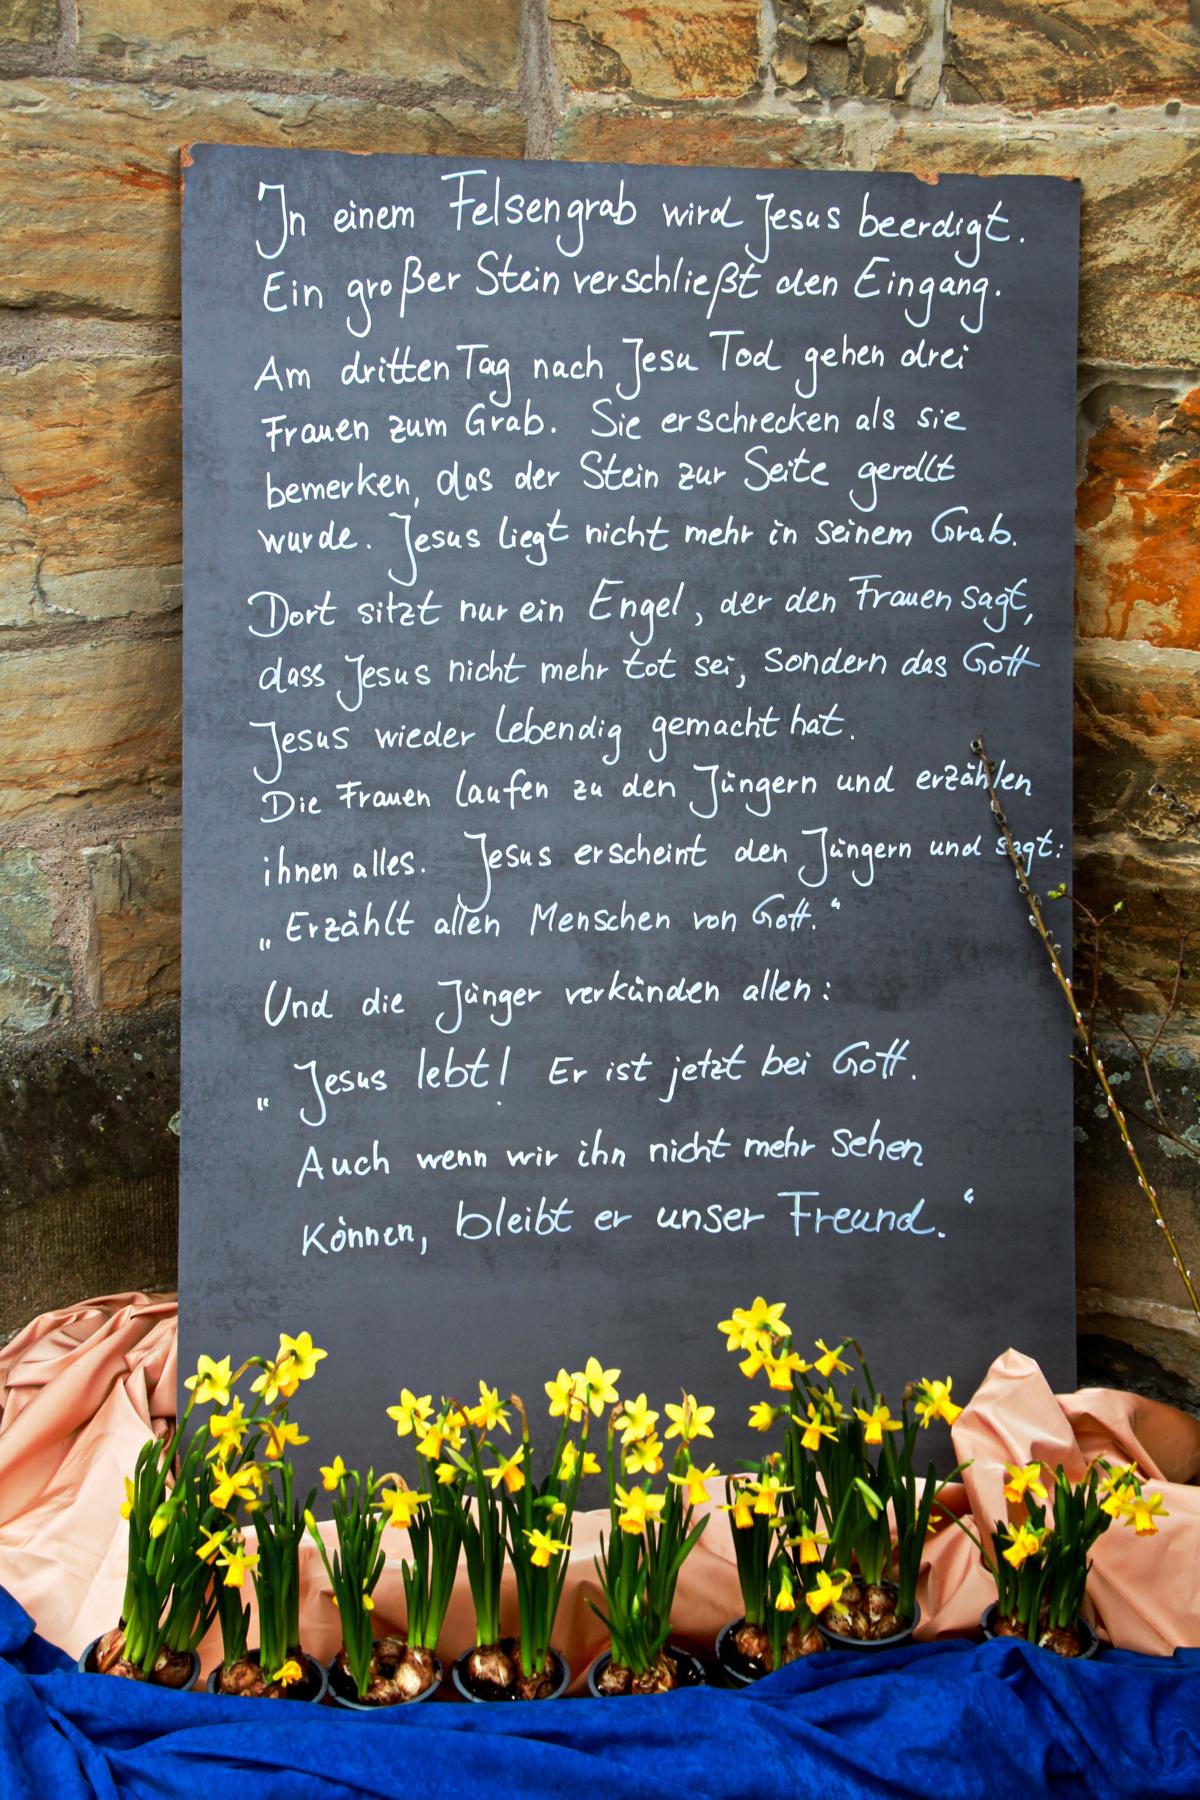 In einem Felsengrab wird Jesus beerdigt.
Ein großer Stein verschließt den Eingang.
Am dritten Tag nach Jesu Tod gehen drei
Frauen zum Grab. Sie erschrecken als sie
bemerken, das der Stein zur Seite gerollt
wurde. Jesus liegt nicht mehr in seinem Grab.
Dort sitzt nur ein Engel, der den Frauen sagt,
dass Jesus nicht mehr tot sei, sondern das Gott
Jesus wieder lebendig gemacht hat.
Die Frauen laufen zu den Jüngern und erzählen
ihnen alles. Jesus erscheint den Jüngern und sagt:
„Erzählt allen Menschen von Gott.“
Und die Jünger verkünden allen:
„Jesus lebt! Er ist jetzt bei Gott.
Auch wenn wir ihn nicht mehr sehen
können, bleibt er unser Freund.“